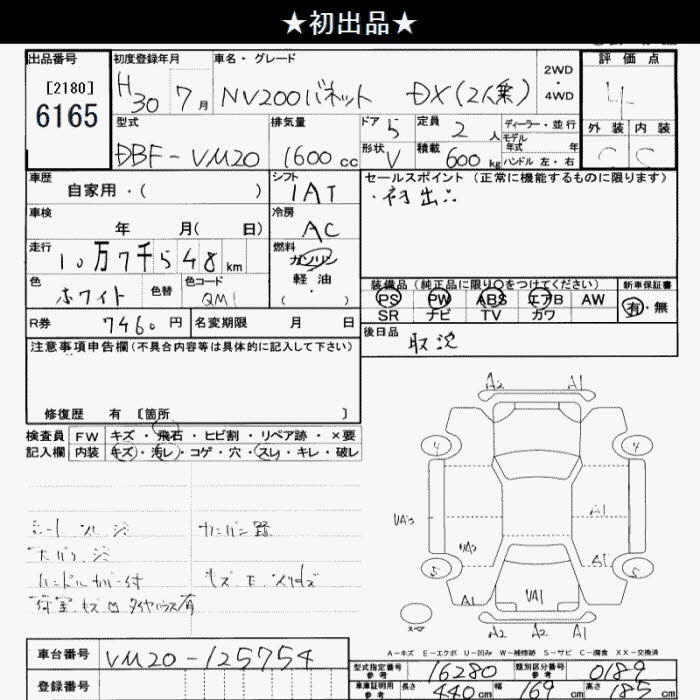 ★初出品★
出品番号 初度登録年月 車名・グレード 2WD・4WD 評価点
[2180] 6165 H30 7月 NV200バネット DX(2人乗) 4
型式 排気量 ドア 5 定員 2人 ディーラー・並行 外装 内装
DBF-VM20 1600cc 形状 V 積載 600kg モデル年式 年 ハンドル 左・右 C C
車歴 シフト セールスポイント (正常に機能するものに限ります)
自家用・( ) IAT ・初出
車検 冷房
年 月( 日) AC
走行 燃料
10万7千548km ガソリン
軽油
・( )
色 色替 色コード 装備品 (純正品に限り○をつけてください) 新車保証書
ホワイト QM1 PS PW ABS エアB AW 有・無
SR ナビ TV カワ
R券 7460円 名変期限 月 日 後日品 取説
注意事項申告欄 (不具合内容等は具体的に記入して下さい)
修復歴 有 [箇所 ]
検査員 FW キズ・飛石・ヒビ割・リペア跡・×要
記入欄 内装 キズ・汚レ・コゲ・穴・スレ・キレ・破レ
A2 A1
4 4
UA3 A1
A1
5 5
A1 UA1
スペア
A2 A2 A1
A-キズ E-エクボ U-凹み W-補修跡 S-サビ C-腐食 XX-交換済
車台番号 VM20-125754
型式指定番号 参考 16280 類別区分番号 参考 0189
登録番号 車庫証明用 参考 長さ 440cm 幅 169cm 高さ 185cm